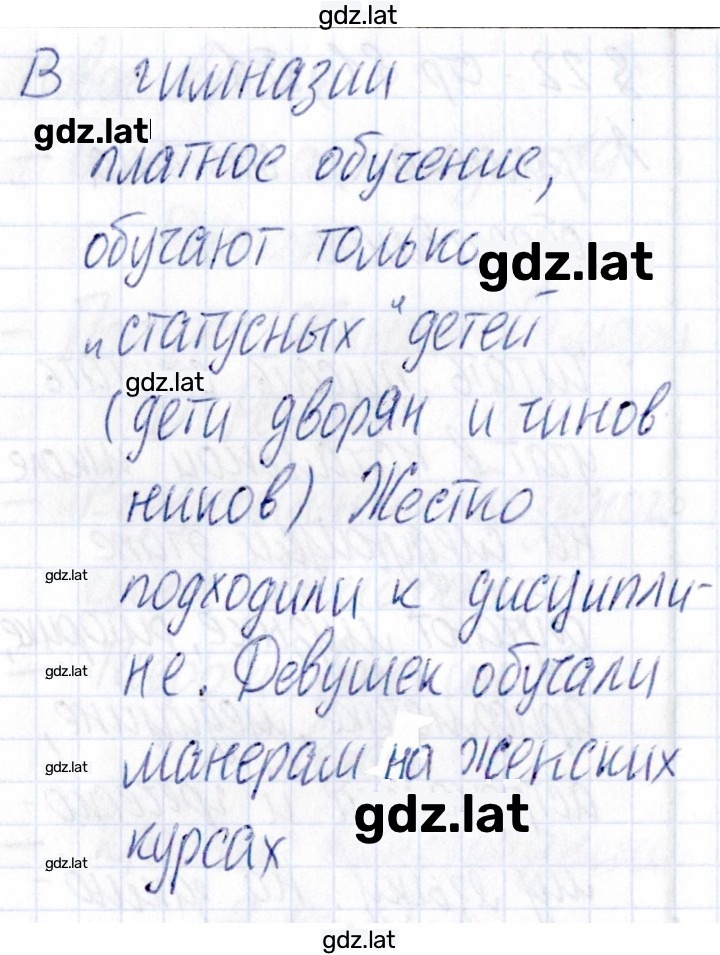 gdz.lat
В гимназии
gdz.lat
платное обучение,
обучают только
gdz.lat
„статусных" детей
gdz.lat
(дети дворян и чинов
ников) Жестко
gdz.lat
подходили к дисципли-
gdz.lat
не. Девушек обучали
gdz.lat
манерам на женских
gdz.lat
gdz.lat
курсах
gdz.lat